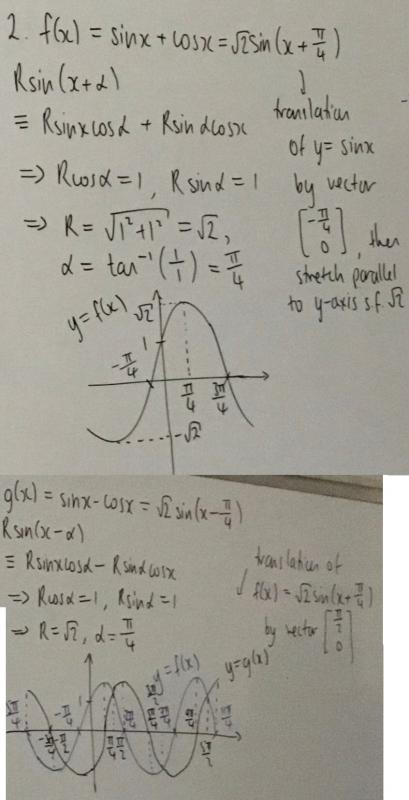 2. f(x) = sinx + cosx = √2sin(x + π/4)
Rsin(x+α)
≡ Rsinxcosα + Rsinαcosx
⇒ Rcosα = 1, Rsinα = 1
⇒ R = √(1²+1²) = √2,
α = tan⁻¹(1/1) = π/4
↓
translation
of y = sinx
by vector
[-π/4
0], then
stretch parallel
to y-axis s.f. √2
y = f(x)
√2
1
-π/4
π/4
3π/4
-√2
g(x) = sinx - cosx = √2 sin(x - π/4)
Rsin(x-α)
≡ Rsinxcosα - Rsinαcosx
⇒ Rcosα = 1, Rsinα = 1
⇒ R = √2, α = π/4
translation of
f(x) = √2sin(x + π/4)
by vector [π/2
0]
y = f(x)
y = g(x)
1
-π/4
-π/2
π/4
π/2